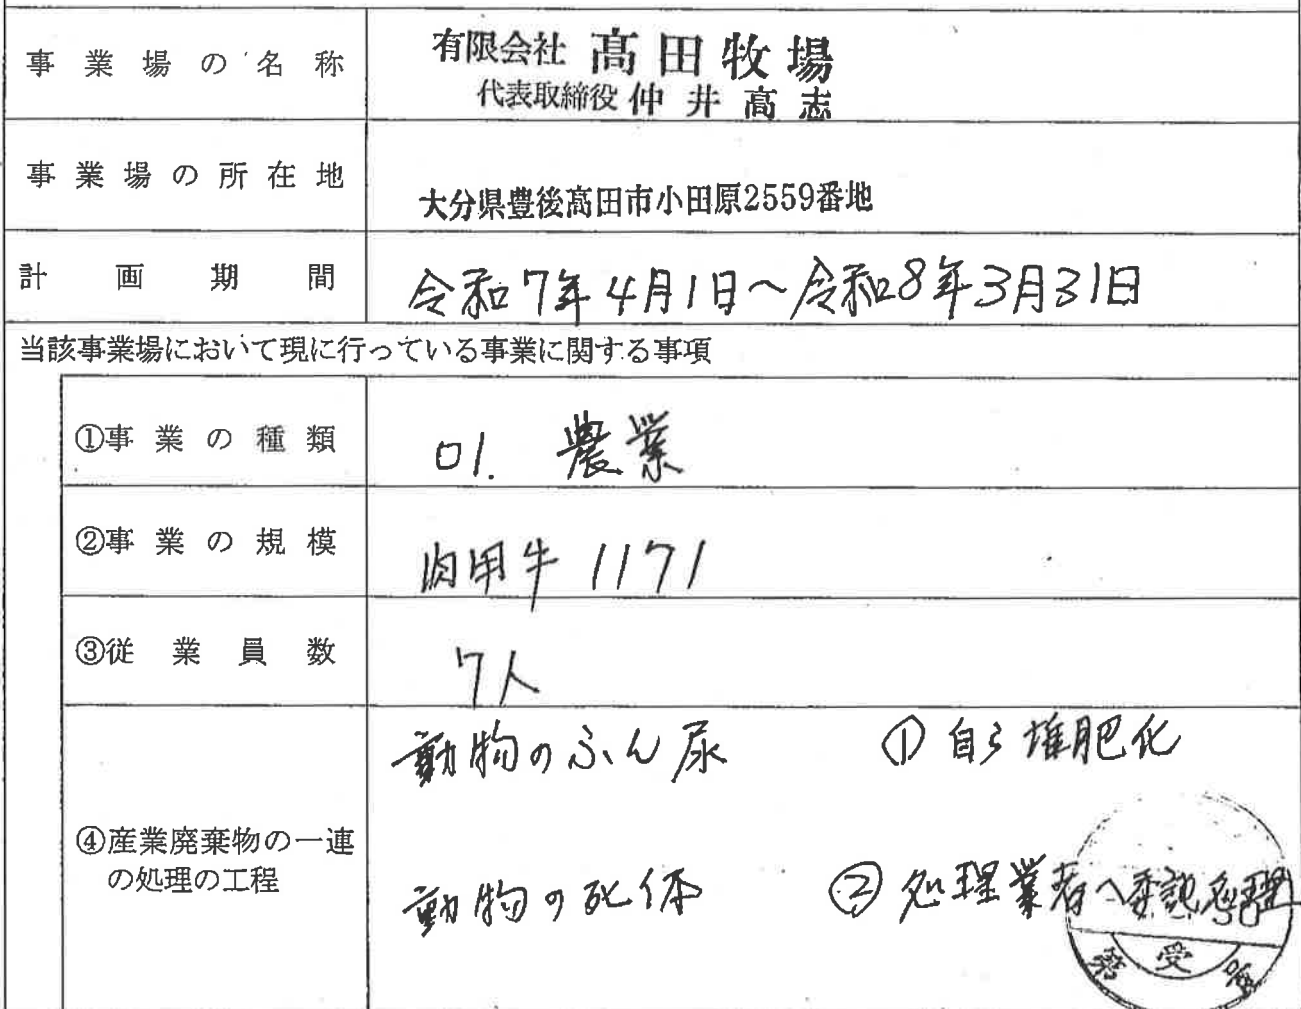 事業場の名称
有限会社 髙田牧場
代表取締役 仲井高志
事業場の所在地
大分県豊後高田市小田原2559番地
計画期間
令和7年4月1日～令和8年3月31日
当該事業場において現に行っている事業に関する事項
①事業の種類
01. 農業
②事業の規模
肉用牛 1171
③従業員数
7人
④産業廃棄物の一連
の処理の工程
動物のふん尿 ①自ら堆肥化
動物の死体 ②処理業者へ委託処理
受